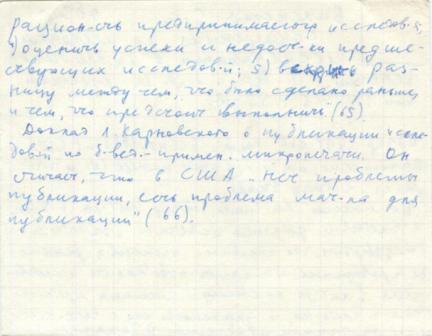 рацион-сть предпринимаемых исследов-й;
4) оценить успехи и недост-ки предше-
ствующих исследов-й; 5) вскрыть раз-
ницу между тем, что было сделано раньше,
и чем, что предстоит выполнить" (65).
Доклад Л. Карновского о публикации "иссле-
дов-й по б-вед. - примен. микропечати. Он
считает, что в США "нет проблемы
публикации, есть проблема мат-ла для
публикации" (66).